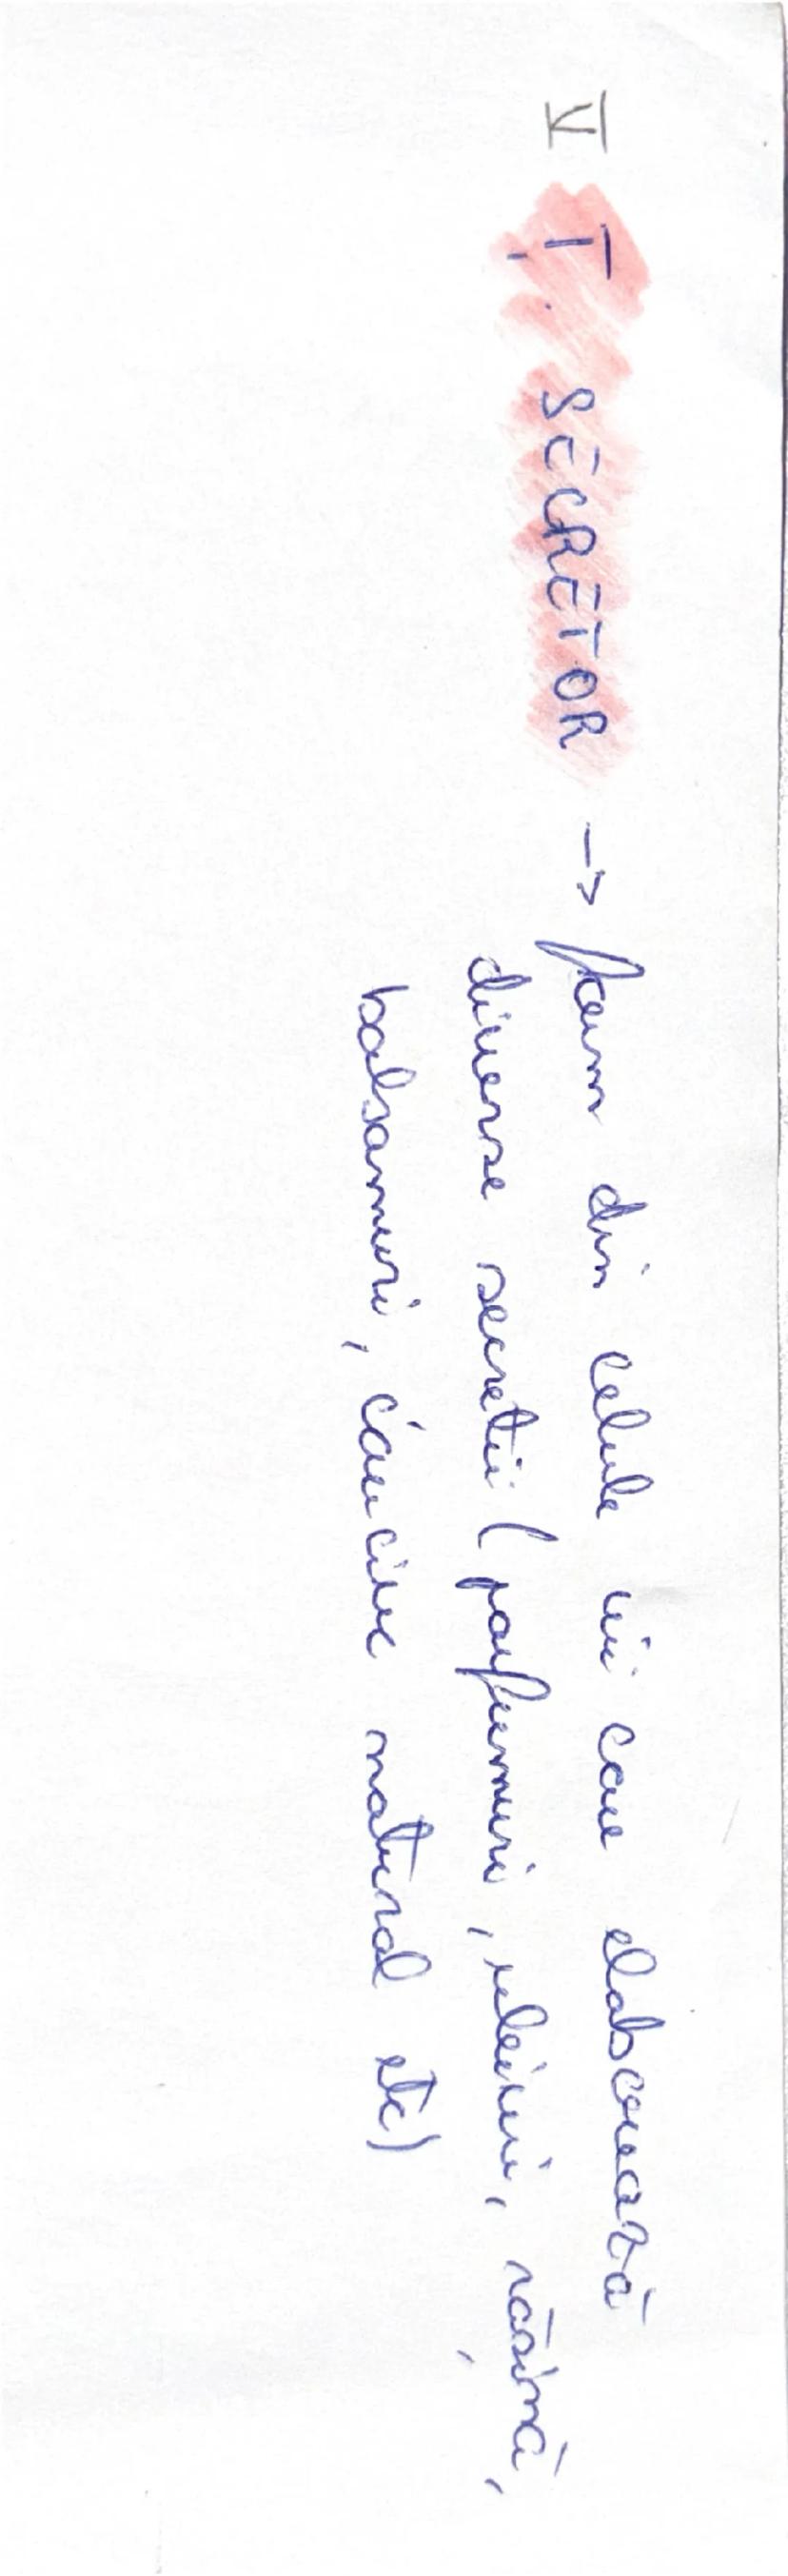 VI Ț. SECRETOR -> form din celule vii care elaborează
diverse secretii (parfumuri, uleiuri, rășină,
balsamuri, cauciuc natural etc)